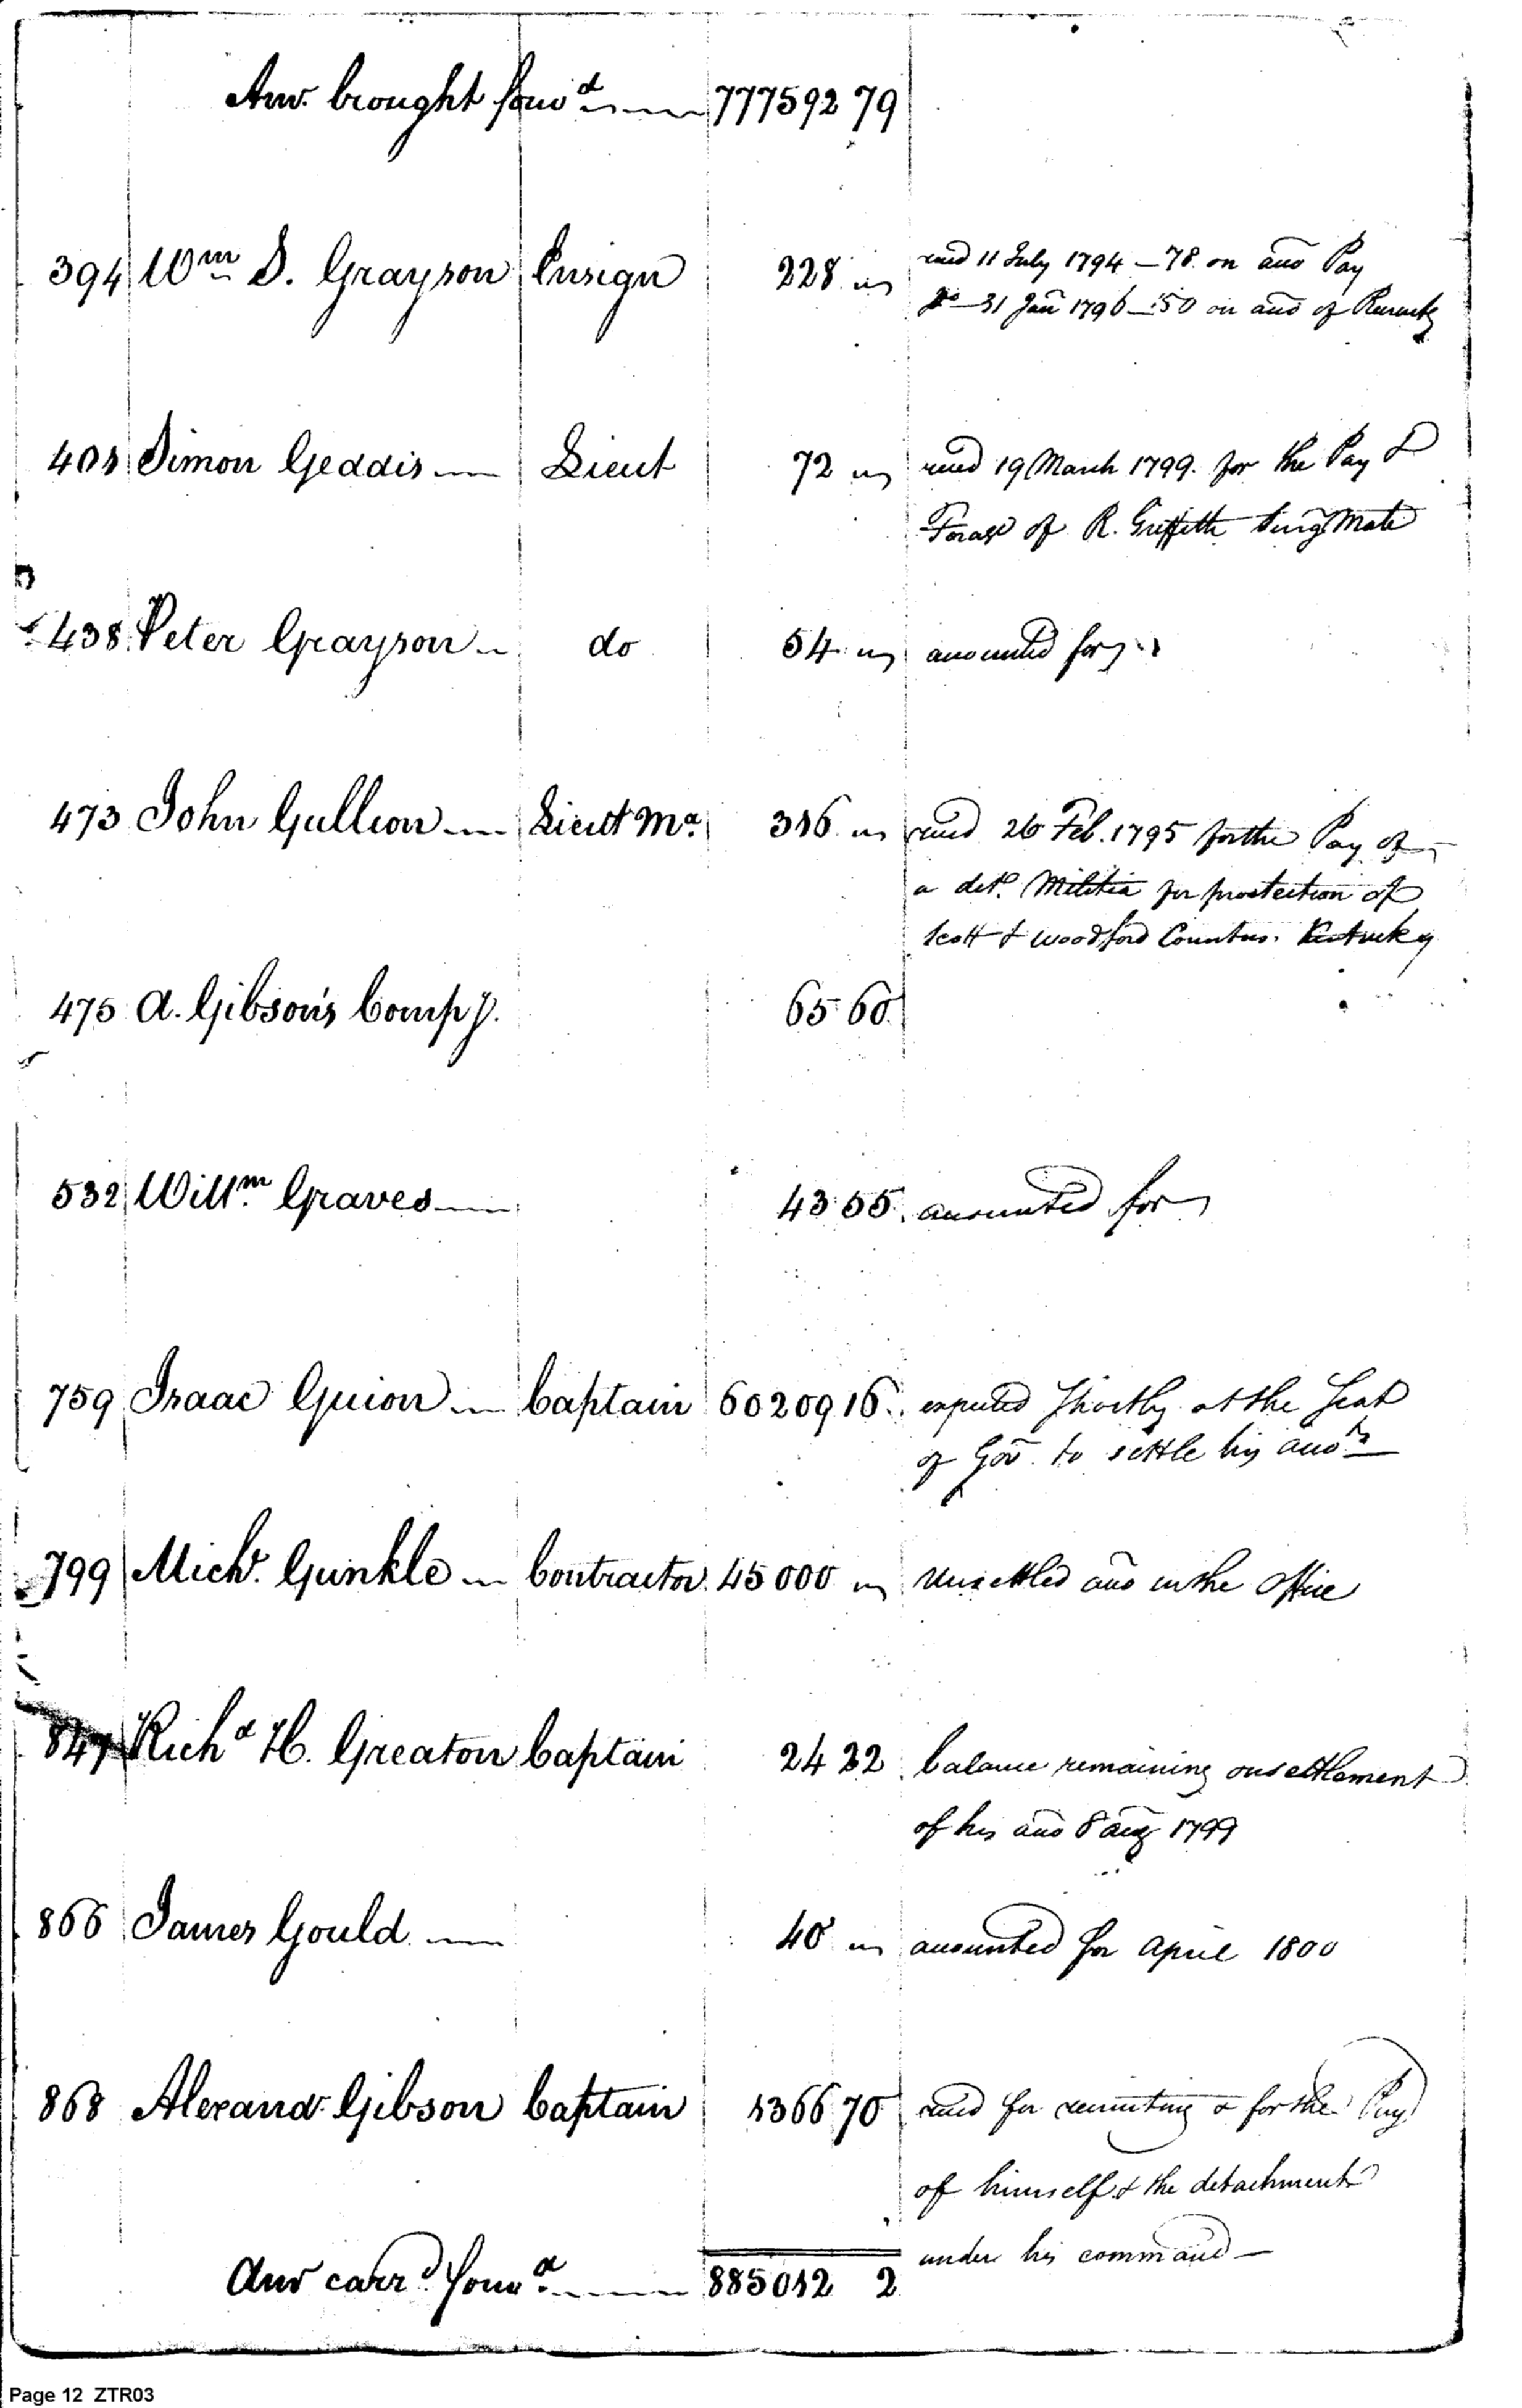 Amo. brought forwd 777592 79
394 Wm D. Grayson Ensign 228 " recd 11 July 1794 — 78. on acco Pay
Do — 31 Jan 1796 — 150 on acco of Recruitg
401 Simon Geddis Lieut 72 " recd 19 March 1799. for the Pay &
Forage of R. Griffith Surgs Mate
438 Peter Grayson do 54 " accounted for
473 John Gullion Lieut Ma. 316 " recd 26 Feb. 1795 for the Pay of
a det. Militia for protection of
Scott & Woodford Counties. Kentucky
475 A. Gibson's Compy. 65 60
532 Willm Graves 43 55 accounted for
759 Isaac Guion Captain 60209 16 expected shortly at the Seat
of Gov. to settle his accots
799 Michl. Gunkle Contractor 45000 " Unsettled acco in the office
847 Richd H. Greaton Captain 24 22 balance remaining on settlement
of his acco 8 Aug 1799
866 James Gould 40 " accounted for April 1800
868 Alexandr. Gibson Captain 1366 70 recd for recruiting & for the Pay
of himself & the detachment
under his command
Amo carrd forwd 885012 2
Page 12 ZTR03